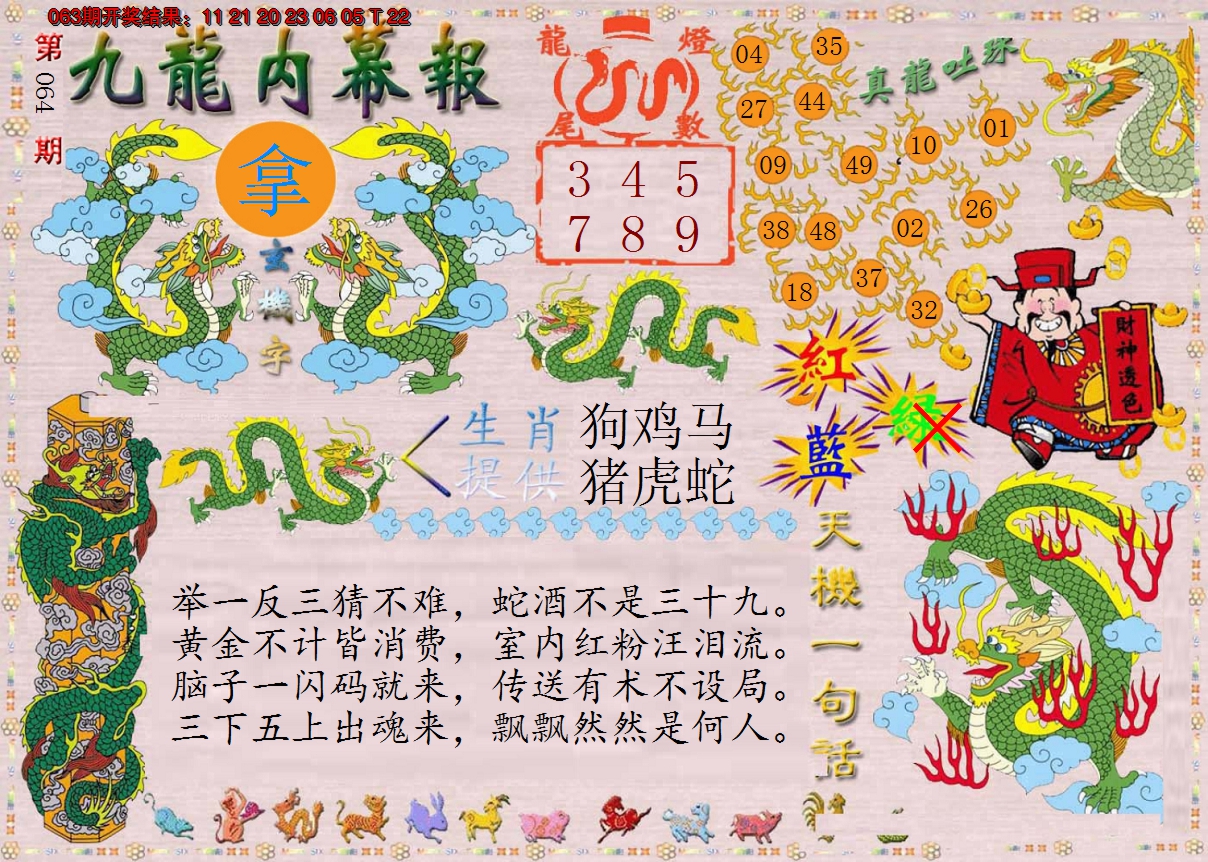 063期开奖结果：11 21 20 23 06 05 T 22
第
064
期
九龍内幕報
拿
玄
機
字
龍燈
尾數
3 4 5
7 8 9
真龍吐珠
04
35
27
44
09
49
10
01
38
48
02
26
18
37
32
紅
綠
藍
財神透色
生肖
提供
狗鸡马
猪虎蛇
举一反三猜不难，蛇酒不是三十九。
黄金不计皆消费，室内红粉汪泪流。
脑子一闪码就来，传送有术不设局。
三下五上出魂来，飘飘然然是何人。
天機一句話